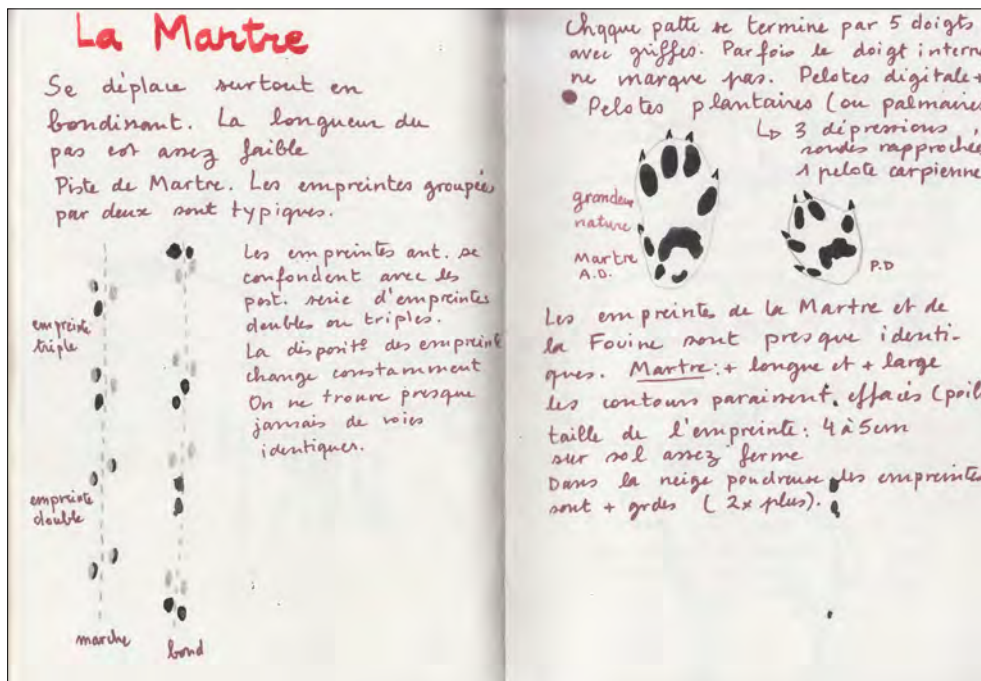 La Martre
Se déplace surtout en
bondissant. La longueur du
pas est assez faible
Piste de Martre. Les empreintes groupées
par deux sont typiques.
Les empreintes ant. se
confondent avec les
post. serie d'empreintes
doubles ou triples.
La disposit° des empreinte
change constamment
On ne trouve presque
jamais de voies
identiques.
empreinte
triple
empreinte
double
marche
bond
Chaque patte se termine par 5 doigts
avec griffes. Parfois le doigt interne
ne marque pas. Pelotes digitale+
Pelotes plantaires (ou palmaires
↳ 3 dépressions
rondes rapprochée
1 pelote carpienne
grandeur
nature
Martre
A.D.
P.D
Les empreintes de la Martre et de
la Fouine sont presque identi-
ques. Martre: + longue et + large
les contours paraissent effacés (poils
taille de l'empreinte: 4 à 5cm
sur sol assez ferme
Dans la neige poudreuse les empreintes
sont + grdes (2x plus).